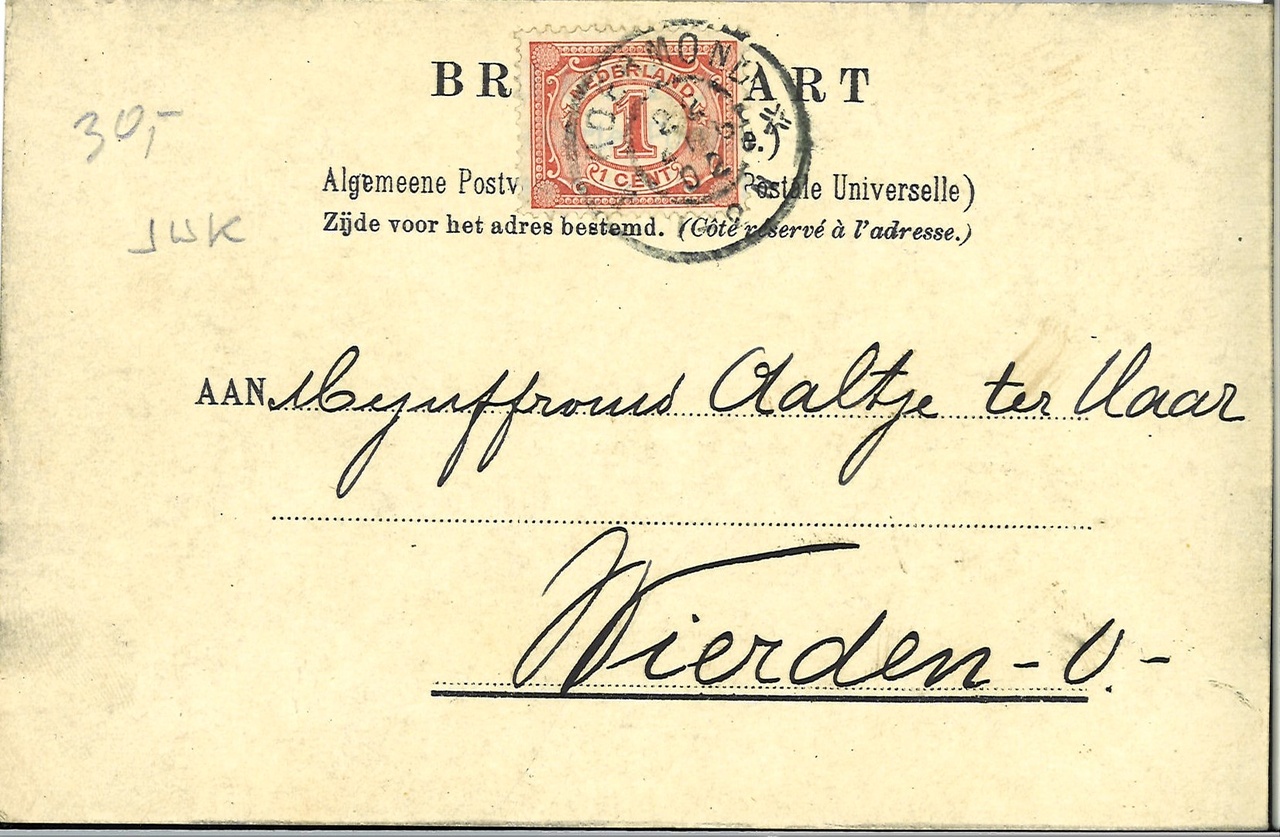 BR ART
e.)
30,-
Algemeene Postv ostale Universelle)
JWK
Zijde voor het adres bestemd. (Côté réservé à l'adresse.)
NEDERLAND
1
1 CENT
AAN Mejuffrouw Aaltje ter Haar
Wierden - O. -